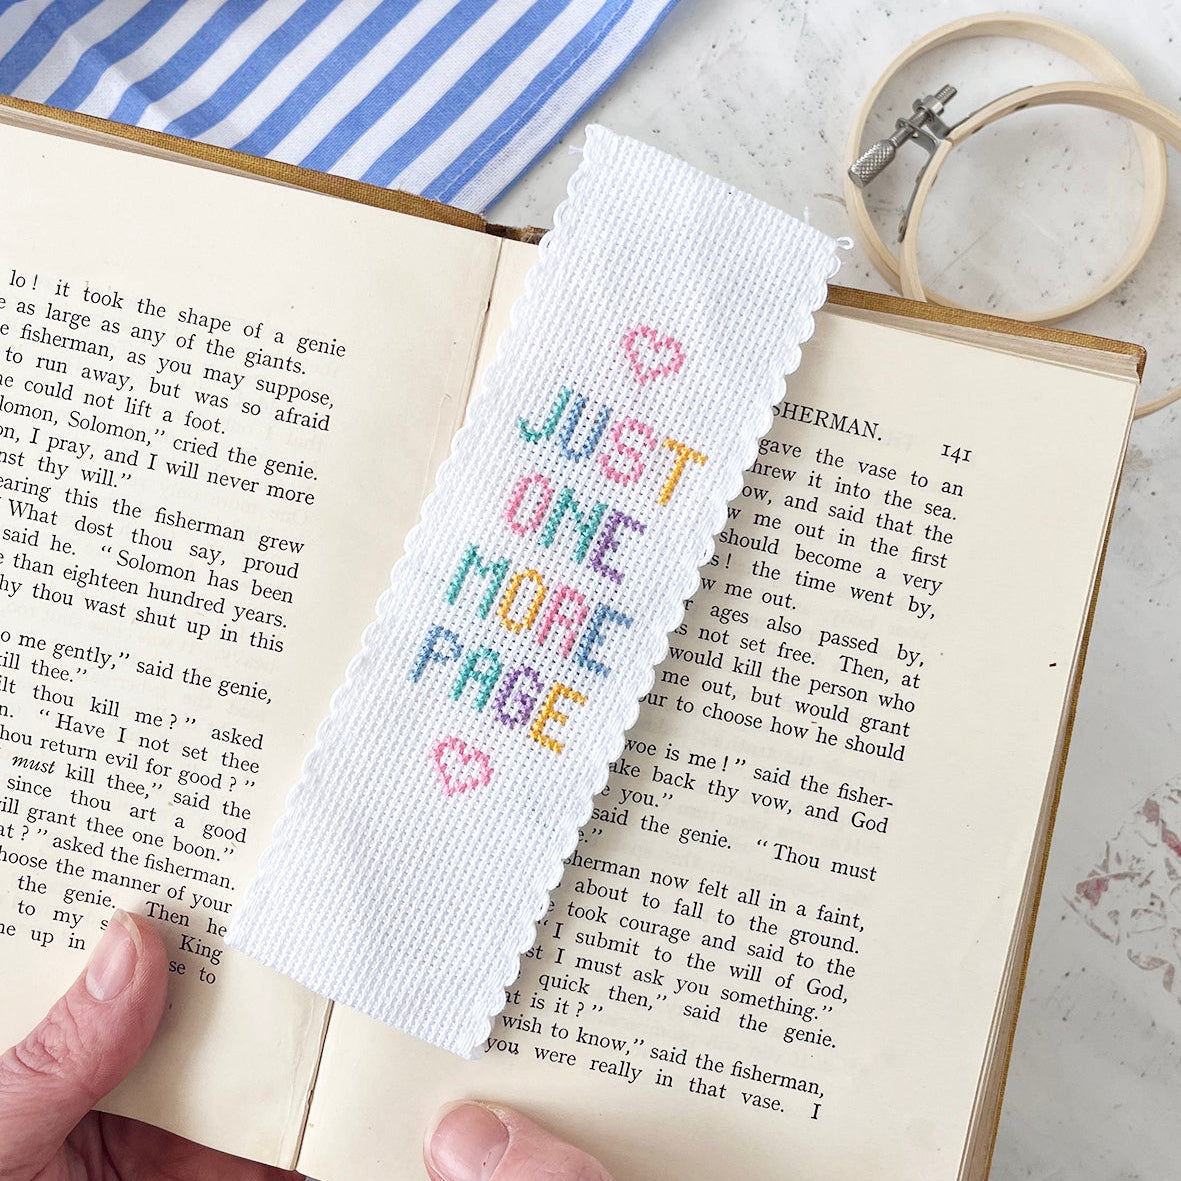 lo! it took the shape of a genie
as large as any of the giants.
fisherman, as you may suppose,
to run away, but was so afraid
could not lift a foot.
Solomon," cried the genie.
I pray, and I will never more
thy will."
this the fisherman grew
"What dost thou say, proud
said he. "Solomon has been
than eighteen hundred years.
thou wast shut up in this
me gently," said the genie,
thee."
thou kill me?" asked
"Have I not set thee
return evil for good?"
must kill thee," said the
since thou art a good
grant thee one boon."
asked the fisherman.
the manner of your
the genie. Then he
to my King
up in
to
JUST
ONE
MORE
PAGE
141
gave the vase to an
it into the sea.
and said that the
me out in the first
should become a very
! the time went by,
me out.
ages also passed by,
not set free. Then, at
would kill the person who
me out, but would grant
to choose how he should
woe is me!" said the fisher-
back thy vow, and God
you."
said the genie. "Thou must
now felt all in a faint,
about to fall to the ground.
took courage and said to the
"I submit to the will of God,
I must ask you something."
quick then," said the genie.
is it?"
wish to know," said the fisherman,
you were really in that vase. I